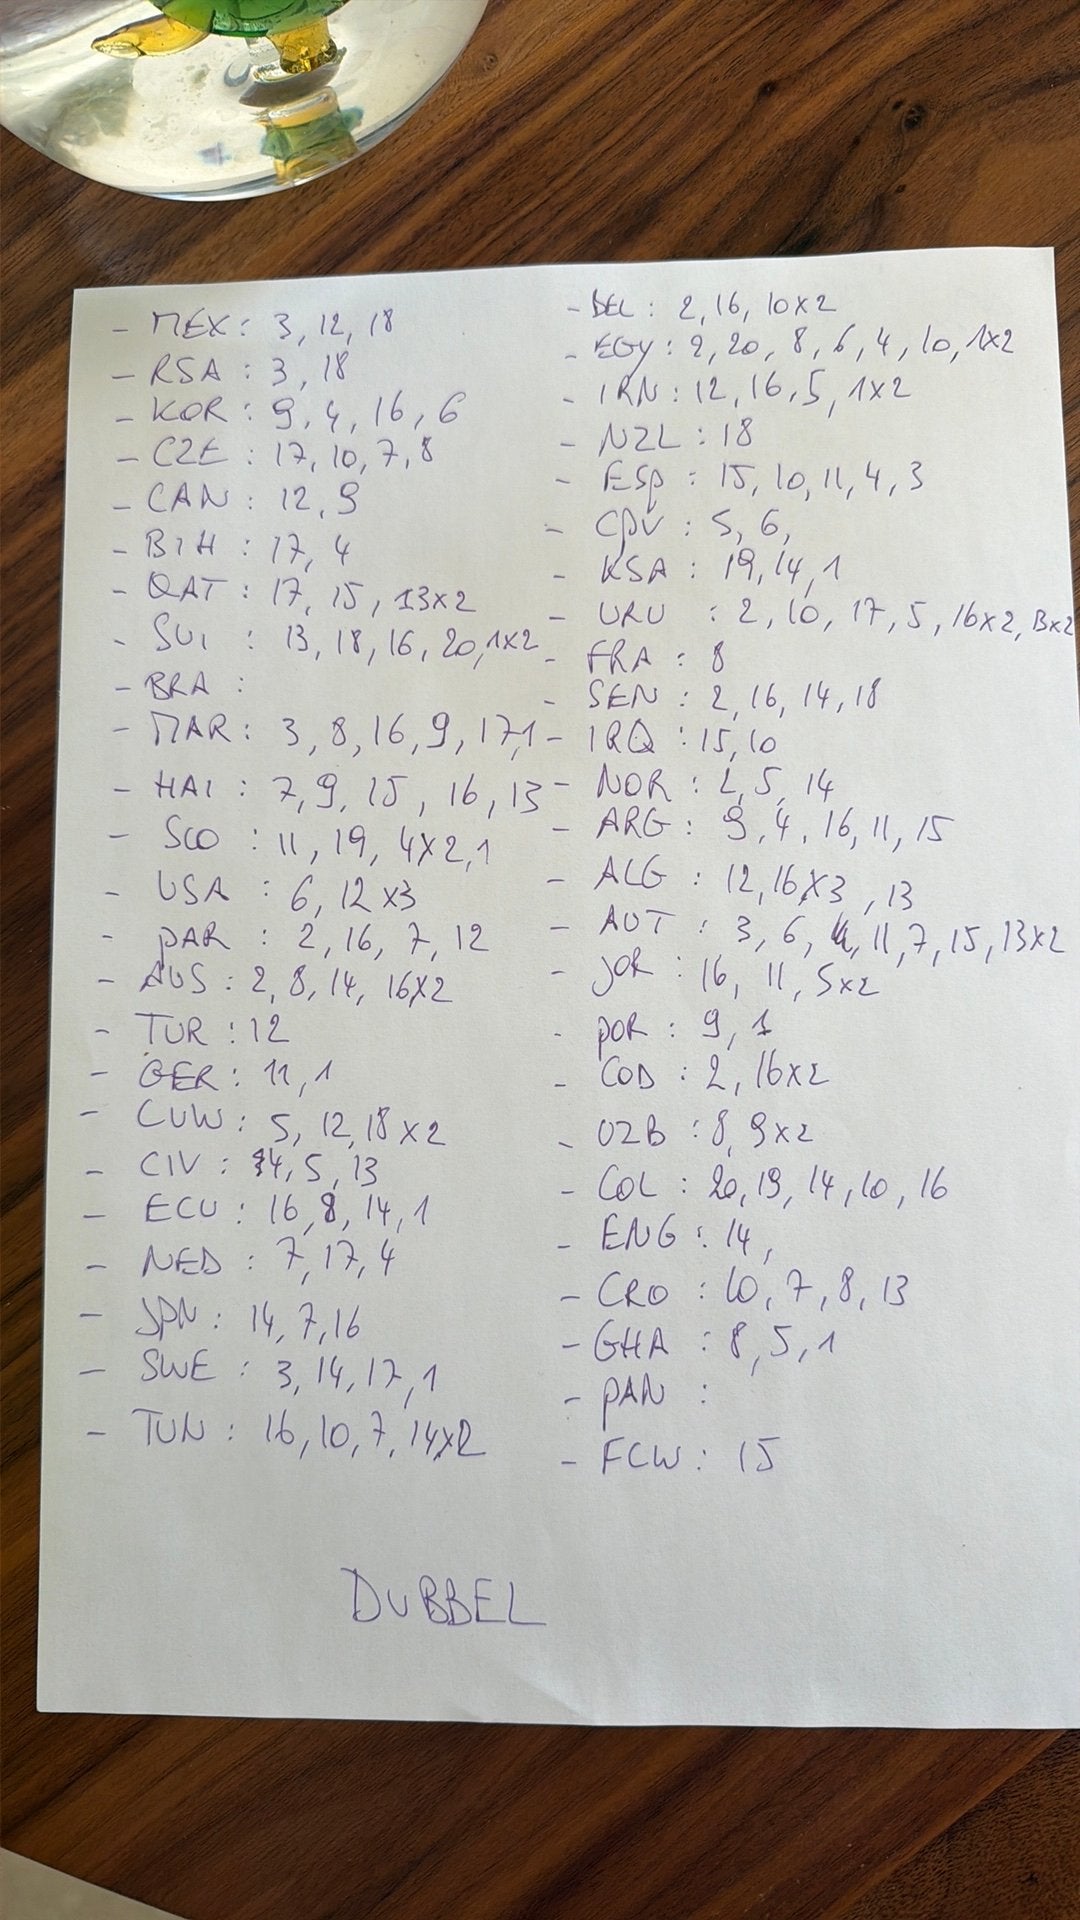 - MEX: 3, 12, 18
- RSA: 3, 18
- KOR: 9, 4, 16, 6
- CZE: 17, 10, 7, 8
- CAN: 12, 9
- BIH: 17, 4
- QAT: 17, 15, 13x2
- SUI: 13, 18, 16, 20, 1x2
- BRA:
- MAR: 3, 8, 16, 9, 17, 1
- HAI: 7, 9, 15, 16, 13
- SCO: 11, 19, 4x2, 1
- USA: 6, 12x3
- PAR: 2, 16, 7, 12
- AUS: 2, 8, 14, 16x2
- TUR: 12
- GER: 11, 1
- CUW: 5, 12, 18x2
- CIV: 14, 5, 13
- ECU: 16, 8, 14, 1
- NED: 7, 17, 4
- JPN: 14, 7, 16
- SWE: 3, 14, 17, 1
- TUN: 16, 10, 7, 14x2
- BEL: 2, 16, 10x2
- EGY: 2, 20, 8, 6, 4, 10, 1x2
- IRN: 12, 16, 5, 1x2
- NZL: 18
- ESP: 15, 10, 11, 4, 3
- CPV: 5, 6,
- KSA: 19, 14, 1
- URU: 2, 10, 17, 5, 16x2, 13x2
- FRA: 8
- SEN: 2, 16, 14, 18
- IRQ: 15, 10
- NOR: 2, 5, 14
- ARG: 9, 4, 16, 11, 15
- ALG: 12, 16x3, 13
- AUT: 3, 6, 4, 11, 7, 15, 13x2
- JOR: 16, 11, 5x2
- POR: 9, 1
- COD: 2, 16x2
- UZB: 8, 9x2
- COL: 20, 19, 14, 10, 16
- ENG: 14,
- CRO: 10, 7, 8, 13
- GHA: 8, 5, 1
- PAN:
- FCW: 15
DUBBEL